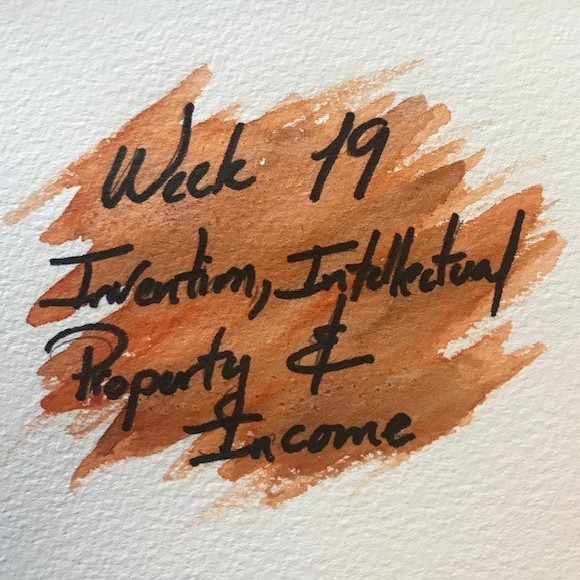 Week 19
Invention, Intellectual
Property &
Income